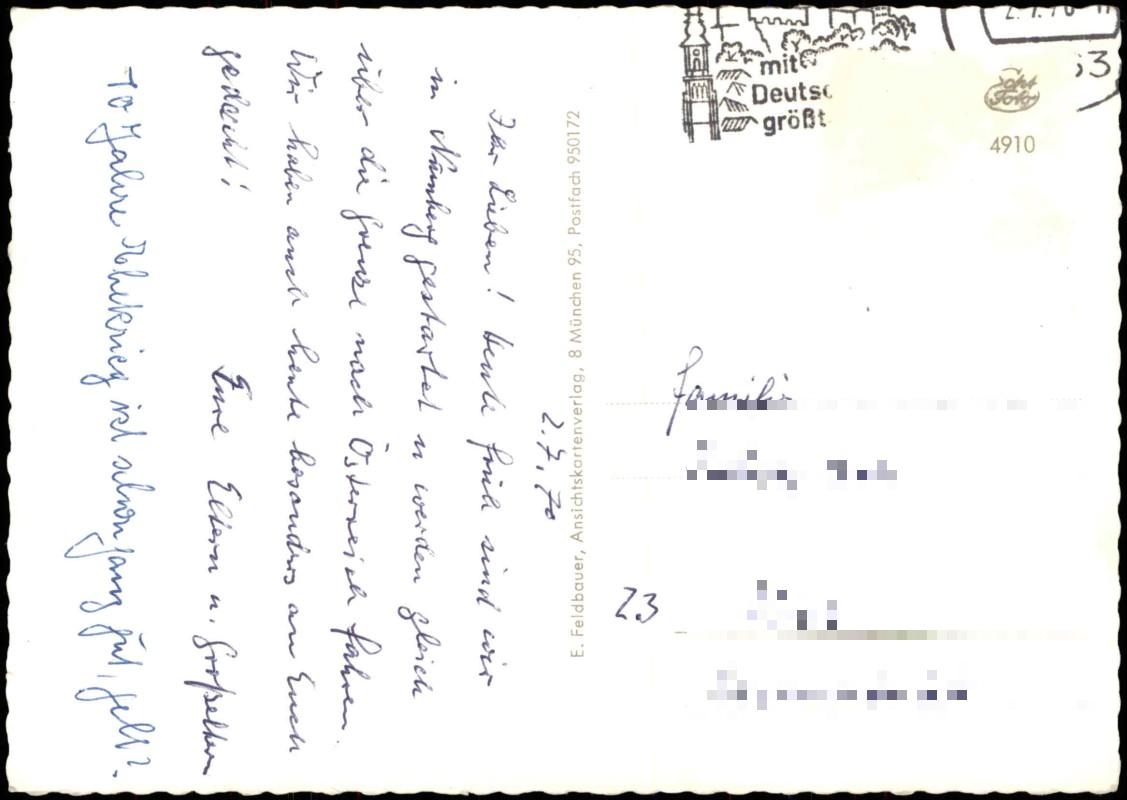 2.7.70
Ihr Lieben! Heute früh sind wir
in Nürnberg gestartet u werden gleich
über die Grenze nach Österreich fahren.
Wir haben auch heute besonders an Euch
gedacht!
Eure Eltern u. Großeltern
10 Jahre ist schon ganz gut, gell?
E. Feldbauer, Ansichtskartenverlag, 8 München 95, Postfach 950172
mit
Deutsc
größt
2.7.70
53
Foto
4910
Familie
23